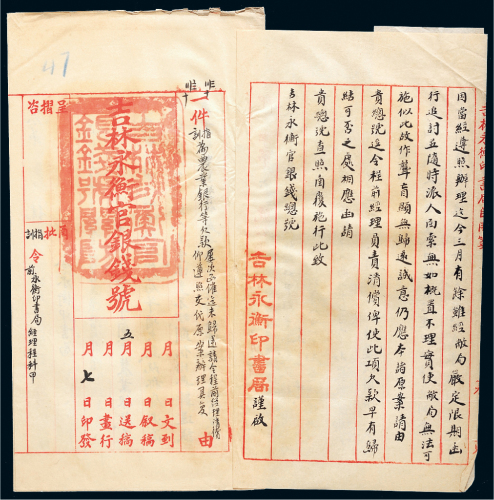 因當經遵照辦理迄今三月有餘雖經敝局嚴定限期函
行追討並隨時派人向索無如概置不理實使敝局無法可
施似此故作聾盲顯無歸還誠意仍應本諸原案請由
貴總號迅令程前經理員責清償俾使此項欠款早有歸
結可否之處相應函請
貴總號查照見覆施行此致
吉林永衡官銀錢總號
吉林永衡印書局謹啟
一件
農業銀行等欠款屢次函催迄未歸還請令程前經理清償
仰遵照交代原案辦理具復
由
吉林永衡官銀錢號
月 日文到
月 日敘稿
五月 日送稿
月 日畫行
月七日印發
呈摺咨
商批指訓
令前永衡印書局經理程科甲
47